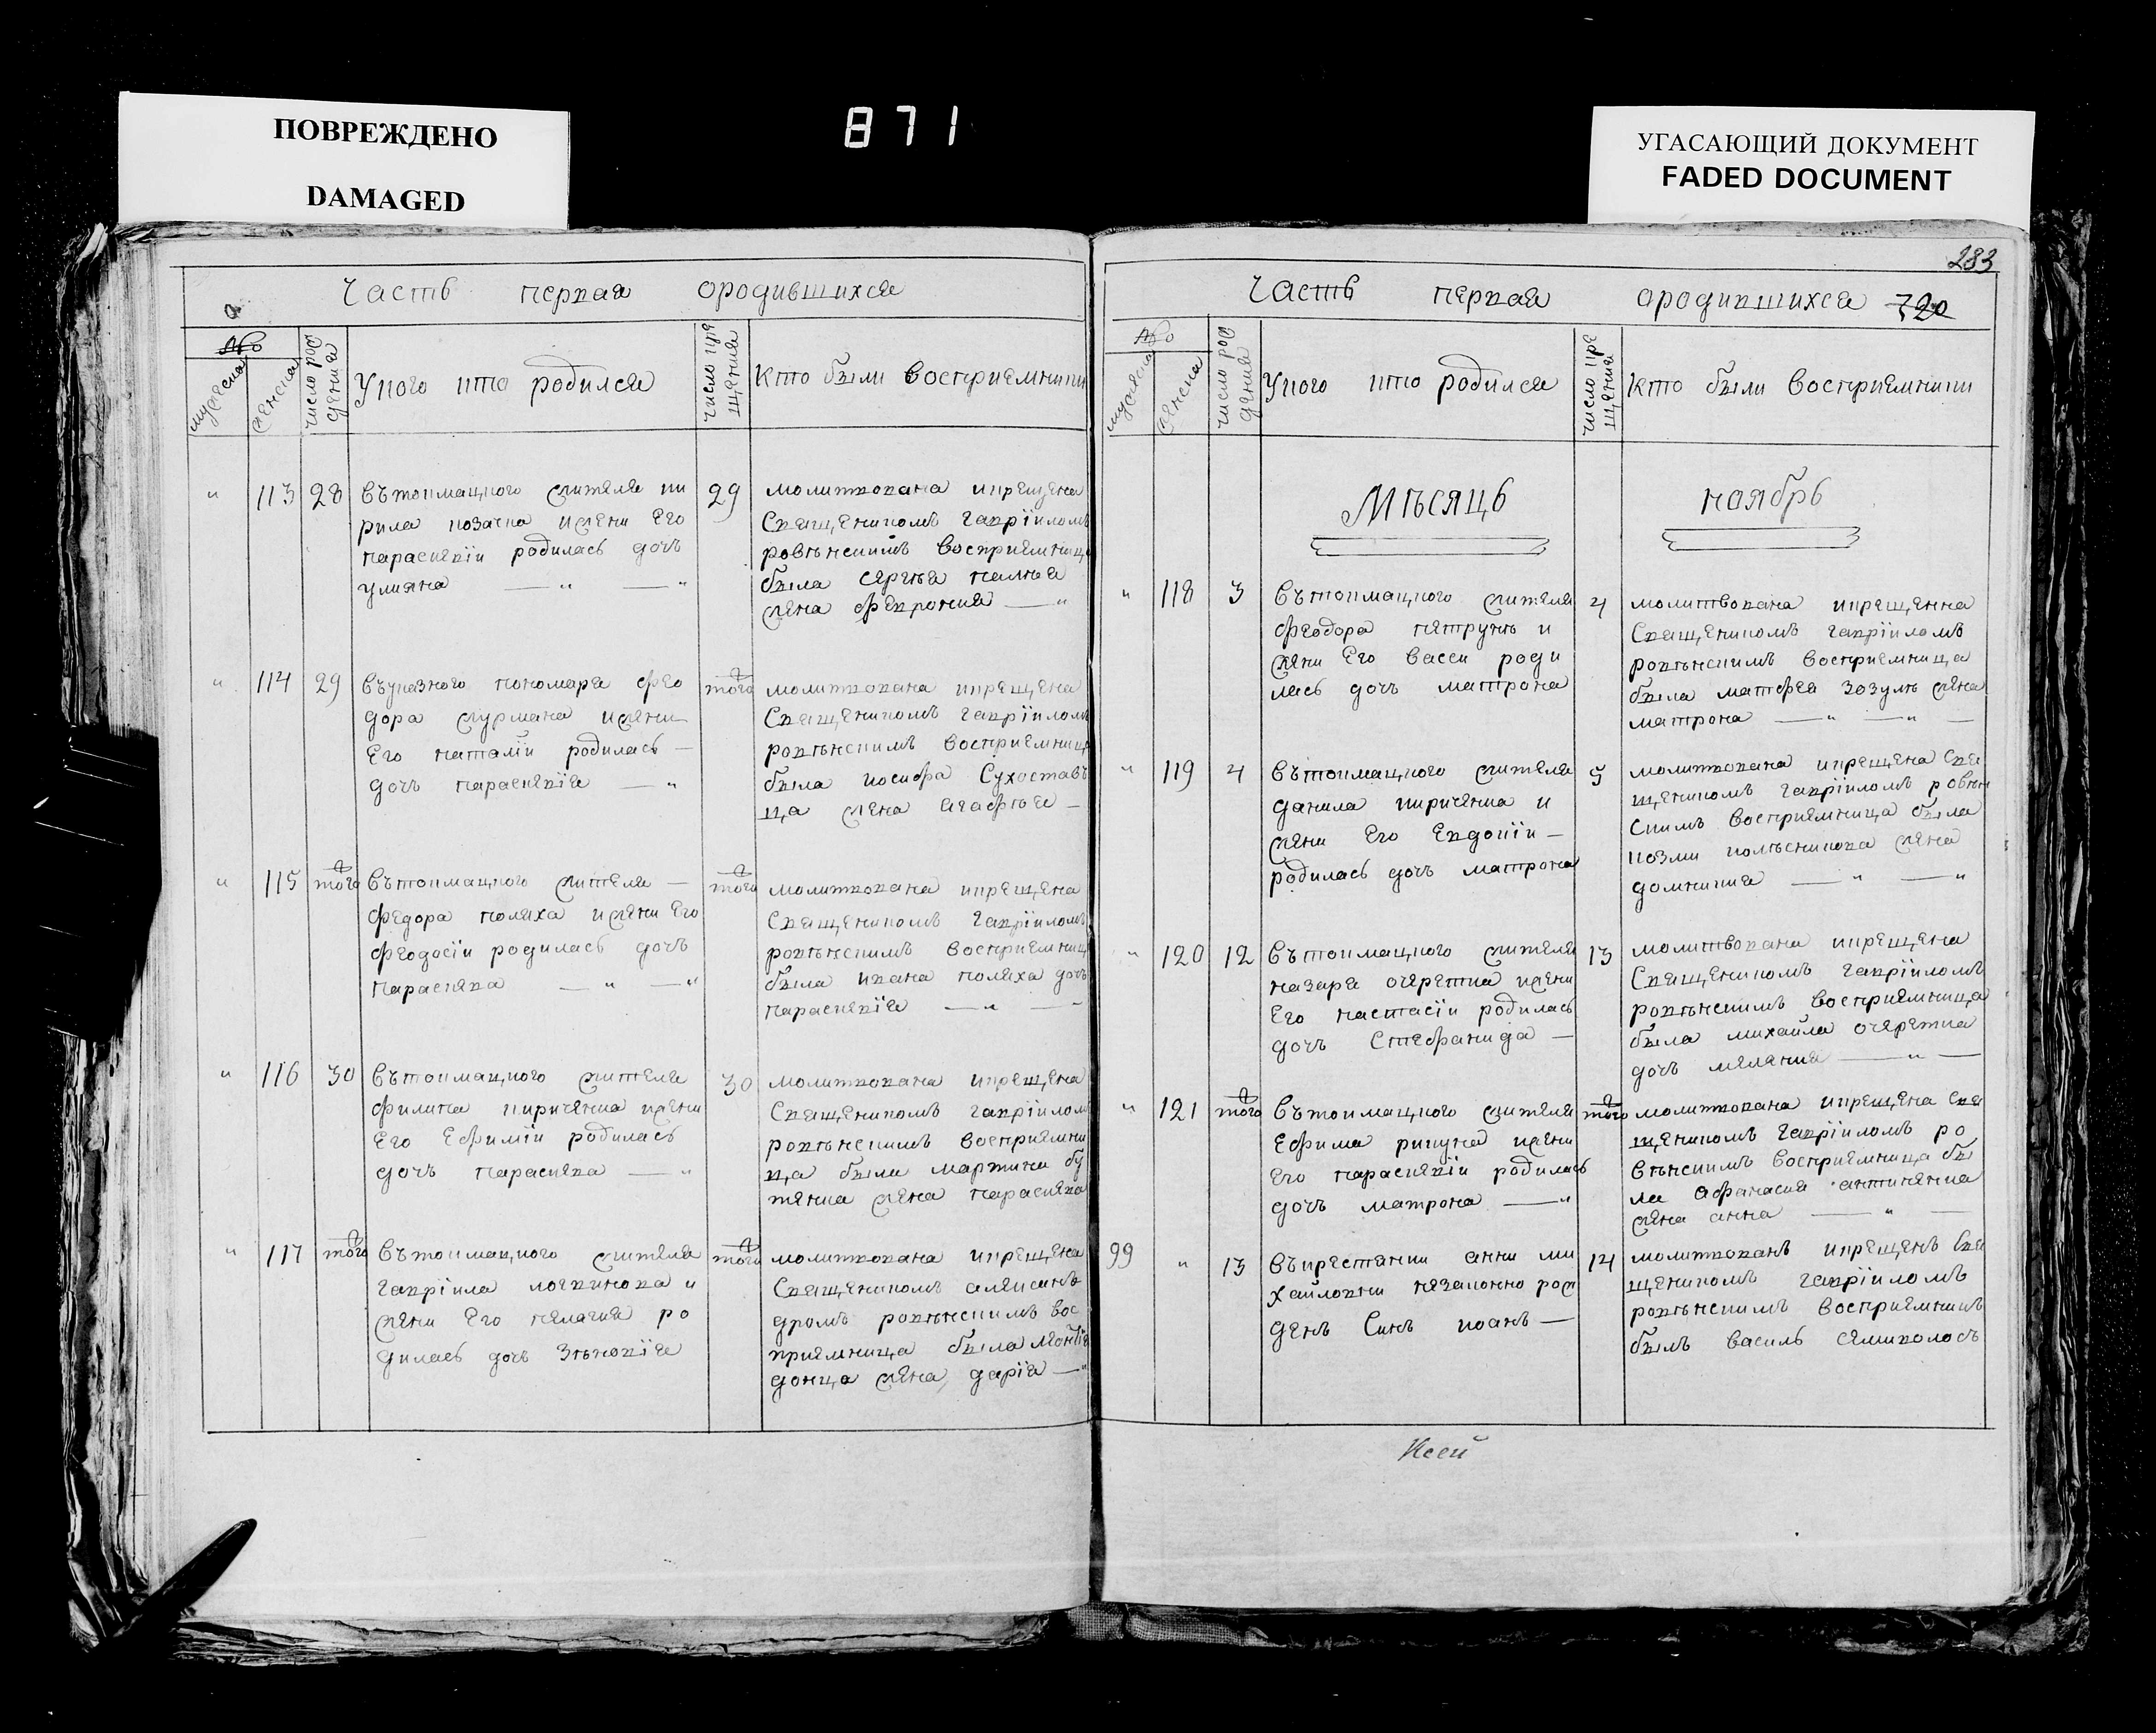 ПОВРЕЖДЕНО
DAMAGED
871
УГАСАЮЩИЙ ДОКУМЕНТ
FADED DOCUMENT
Часть первая ородившихся
№
мужеска
женска
число рож
дения
Укого кто родился
число кре
щения
Кто были восприемники
" 113 28
вътоимацкого жителя ки
рила козачка ижени Его
параскевїи родилась дочъ
улияна — " — "
29
молитвована икрещена
Священикомъ гавріиломъ
ровѣнскимъ восприемница
была сергѣя
жена феврония — "
" 114 29
въуказного пономаря фео
дора шурмана ижени
Его наталїи родилась —
дочъ параскевїя — "
того
молитвована икрещена
Священикомъ гавріиломъ
ровѣнскимъ восприемница
была иосифа Сухостав
ца жена агафѣя —
" 115 того
вътоимацкого жителя —
федора поляха ижени Его
феодосіи родилась дочъ
параскева — " — "
того
молитвована икрещена
Священикомъ гавріиломъ
ровѣнскимъ восприемница
была ивана поляха дочъ
параскевїя — " —
" 116 30
вътоимацкого жителя
филипа кириченка ижени
Его Ефимїи родилась
дочъ параскева — "
30
молитвована икрещена
Священикомъ гавріиломъ
ровѣнскимъ восприемни
ца были мартина бу
тенка жена параскева
" 117 того
вътоимацкого жителя
гавріила логвинова и
жени Его пелагия ро
дилась дочъ Зѣновїя
того
молитвована икрещена
Священикомъ алексанъ
дромъ ровѣнскимъ вос
приемница была
донца жена, дарїя — "
283
Часть первая ородившихся 720
№
мужеска
женска
число рож
дения
Укого кто родился
число кре
щения
Кто были восприемники
Мѣсяцъ ноябрь
" 118 3
вътоимацкого жителя
феодора петрунѣ и
жени Его васси роди
лась дочъ матрона
4
молитвована икрещенна
Священикомъ гавріиломъ
ровѣнскимъ восприемница
была матфея зозулѣ жена
матрона — " — " —
" 119 4
вътоимацкого жителя
данила кириченка и
жени Его Евдокїи —
родилась дочъ матрона
5
молитвована икрещена свя
щеникомъ гавріиломъ ровѣн
скимъ восприемница была
козми колѣсникова жена
домникия — " — "
" 120 12
вътоимацкого жителя
назаря очеретна ижени
Его настасіи родилась
дочъ Стефанида —
13
молитвована икрещена
Священикомъ гавріиломъ
ровѣнскимъ восприемница
была михайла очеретна
дочъ мелания — " —
" 121 того
вътоимацкого жителя
Ефима рикуна ижени
Его параскевїи родилась
дочъ матрона — "
того
молитвована икрещена свя
щеникомъ гавріиломъ ро
вѣнскимъ восприемница бы
ла афанасия антипенка
жена анна — " —
99 " 13
въкрестянки анни ми
хайловни незаконно рож
денъ Синъ иоанъ —
14
молитвованъ икрещенъ Свя
щеникомъ гавріиломъ
ровѣнскимъ восприемникъ
былъ василь семиволосъ
Ксей